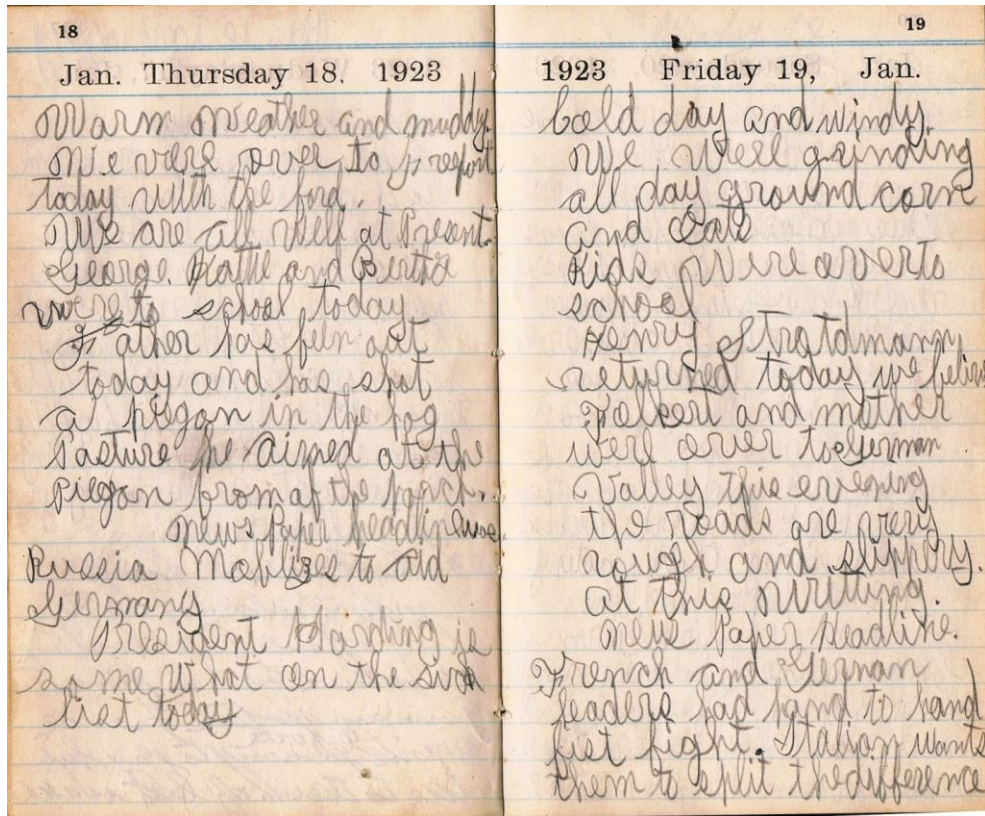 18
Jan. Thursday 18. 1923
Warm Weather and muddy.
We were over to Freeport
today with the ford.
We are all well at Present.
George. Kattie and Bertha
were to school today
Father has been out
today and has shot
a piegon in the hog
Pasture he aimed at the
piegon from of the porch.
News Paper headline was.
Russia Moblizes to aid
Germany
President Harding is
some what on the sick
list today
19
1923 Friday 19, Jan.
Cold day and windy.
We were grinding
all day ground corn
and Oats
Kids were over to
school
Henry Stratdmann
returned today we believe
Folkert and mother
were over to German
Valley this evening
the roads are very
rough and slippery.
at this writing.
News Paper Headline.
French and German
leaders had hand to hand
fist fight. Italian wants
them to split the difference